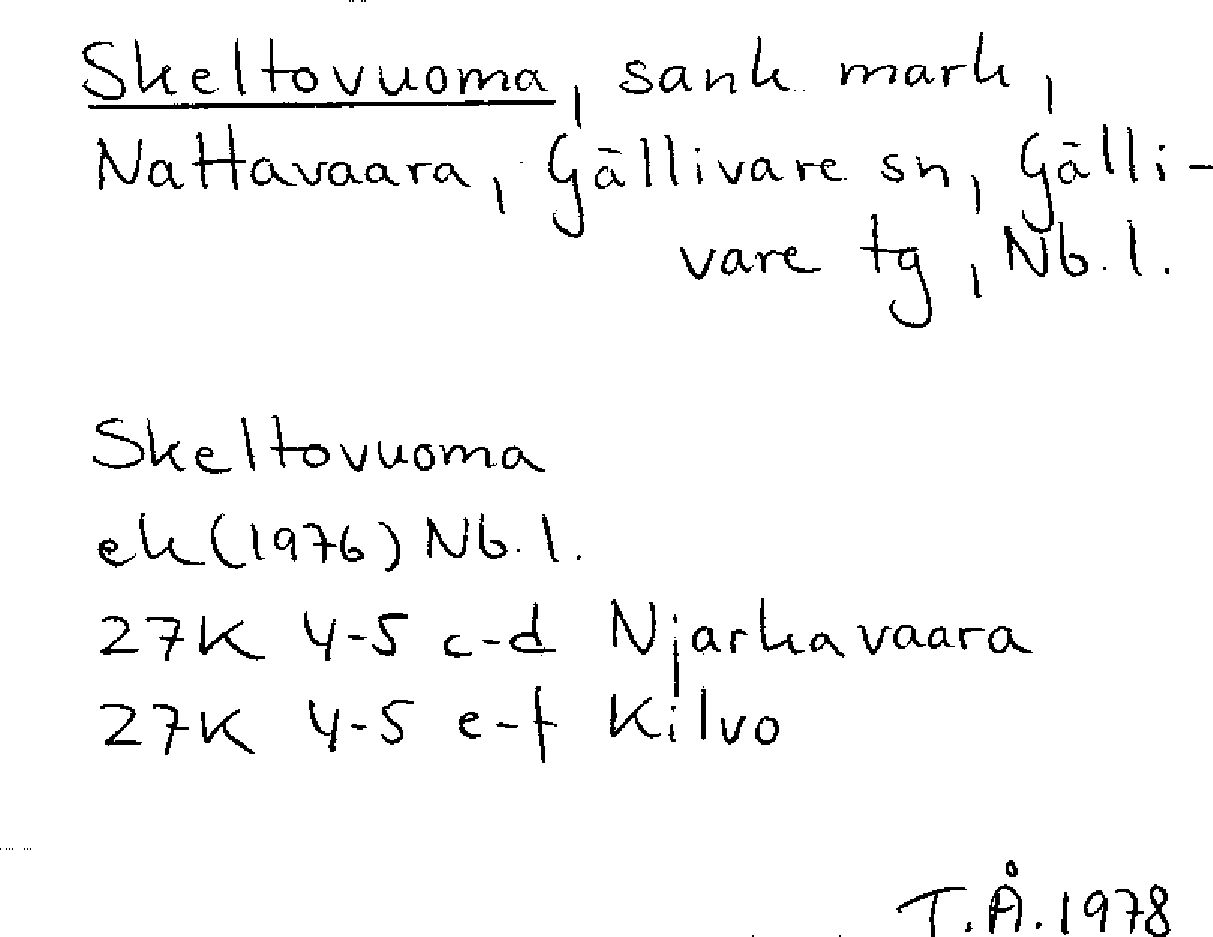 Skeltovuoma, sank mark,
Nattavaara, Gällivare sn, Gälli-
vare tg, Nb. l.
Skeltovuoma
ek (1976) Nb. l.
27K 4-5 c-d Njarkavaara
27K 4-5 e-f Kilvo
T.Å. 1978